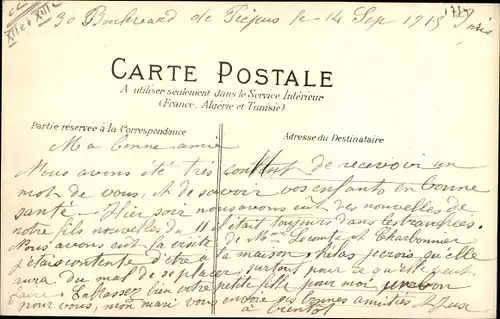 XII et XIII
30 Boulevard de Picpus le 14 Sep 1915 Paris
CARTE POSTALE
A utiliser seulement dans le Service Intérieur
(France, Algérie et Tunisie)
Partie réservée à la Correspondance
Adresse du Destinataire
Ma bonne amie
Nous avons été très content de recevoir un
mot de vous, et de savoir vos enfants en bonne
santé - Hier soir nous avons eut des nouvelles de
notre fils nouvelles du 11 il était toujours dans les tranchées.
Nous avons eut la visite de Mme Lecomte et Charbonnier
j'étais contente d'être à la maison, hélas je crois qu'elle
aura du mal de se placer, surtout pour ce qu'elle peut
faire. Embrassez bien votre petite fille pour moi
pour vous, mon mari vous envoie ses bonnes amitiés
à bientôt